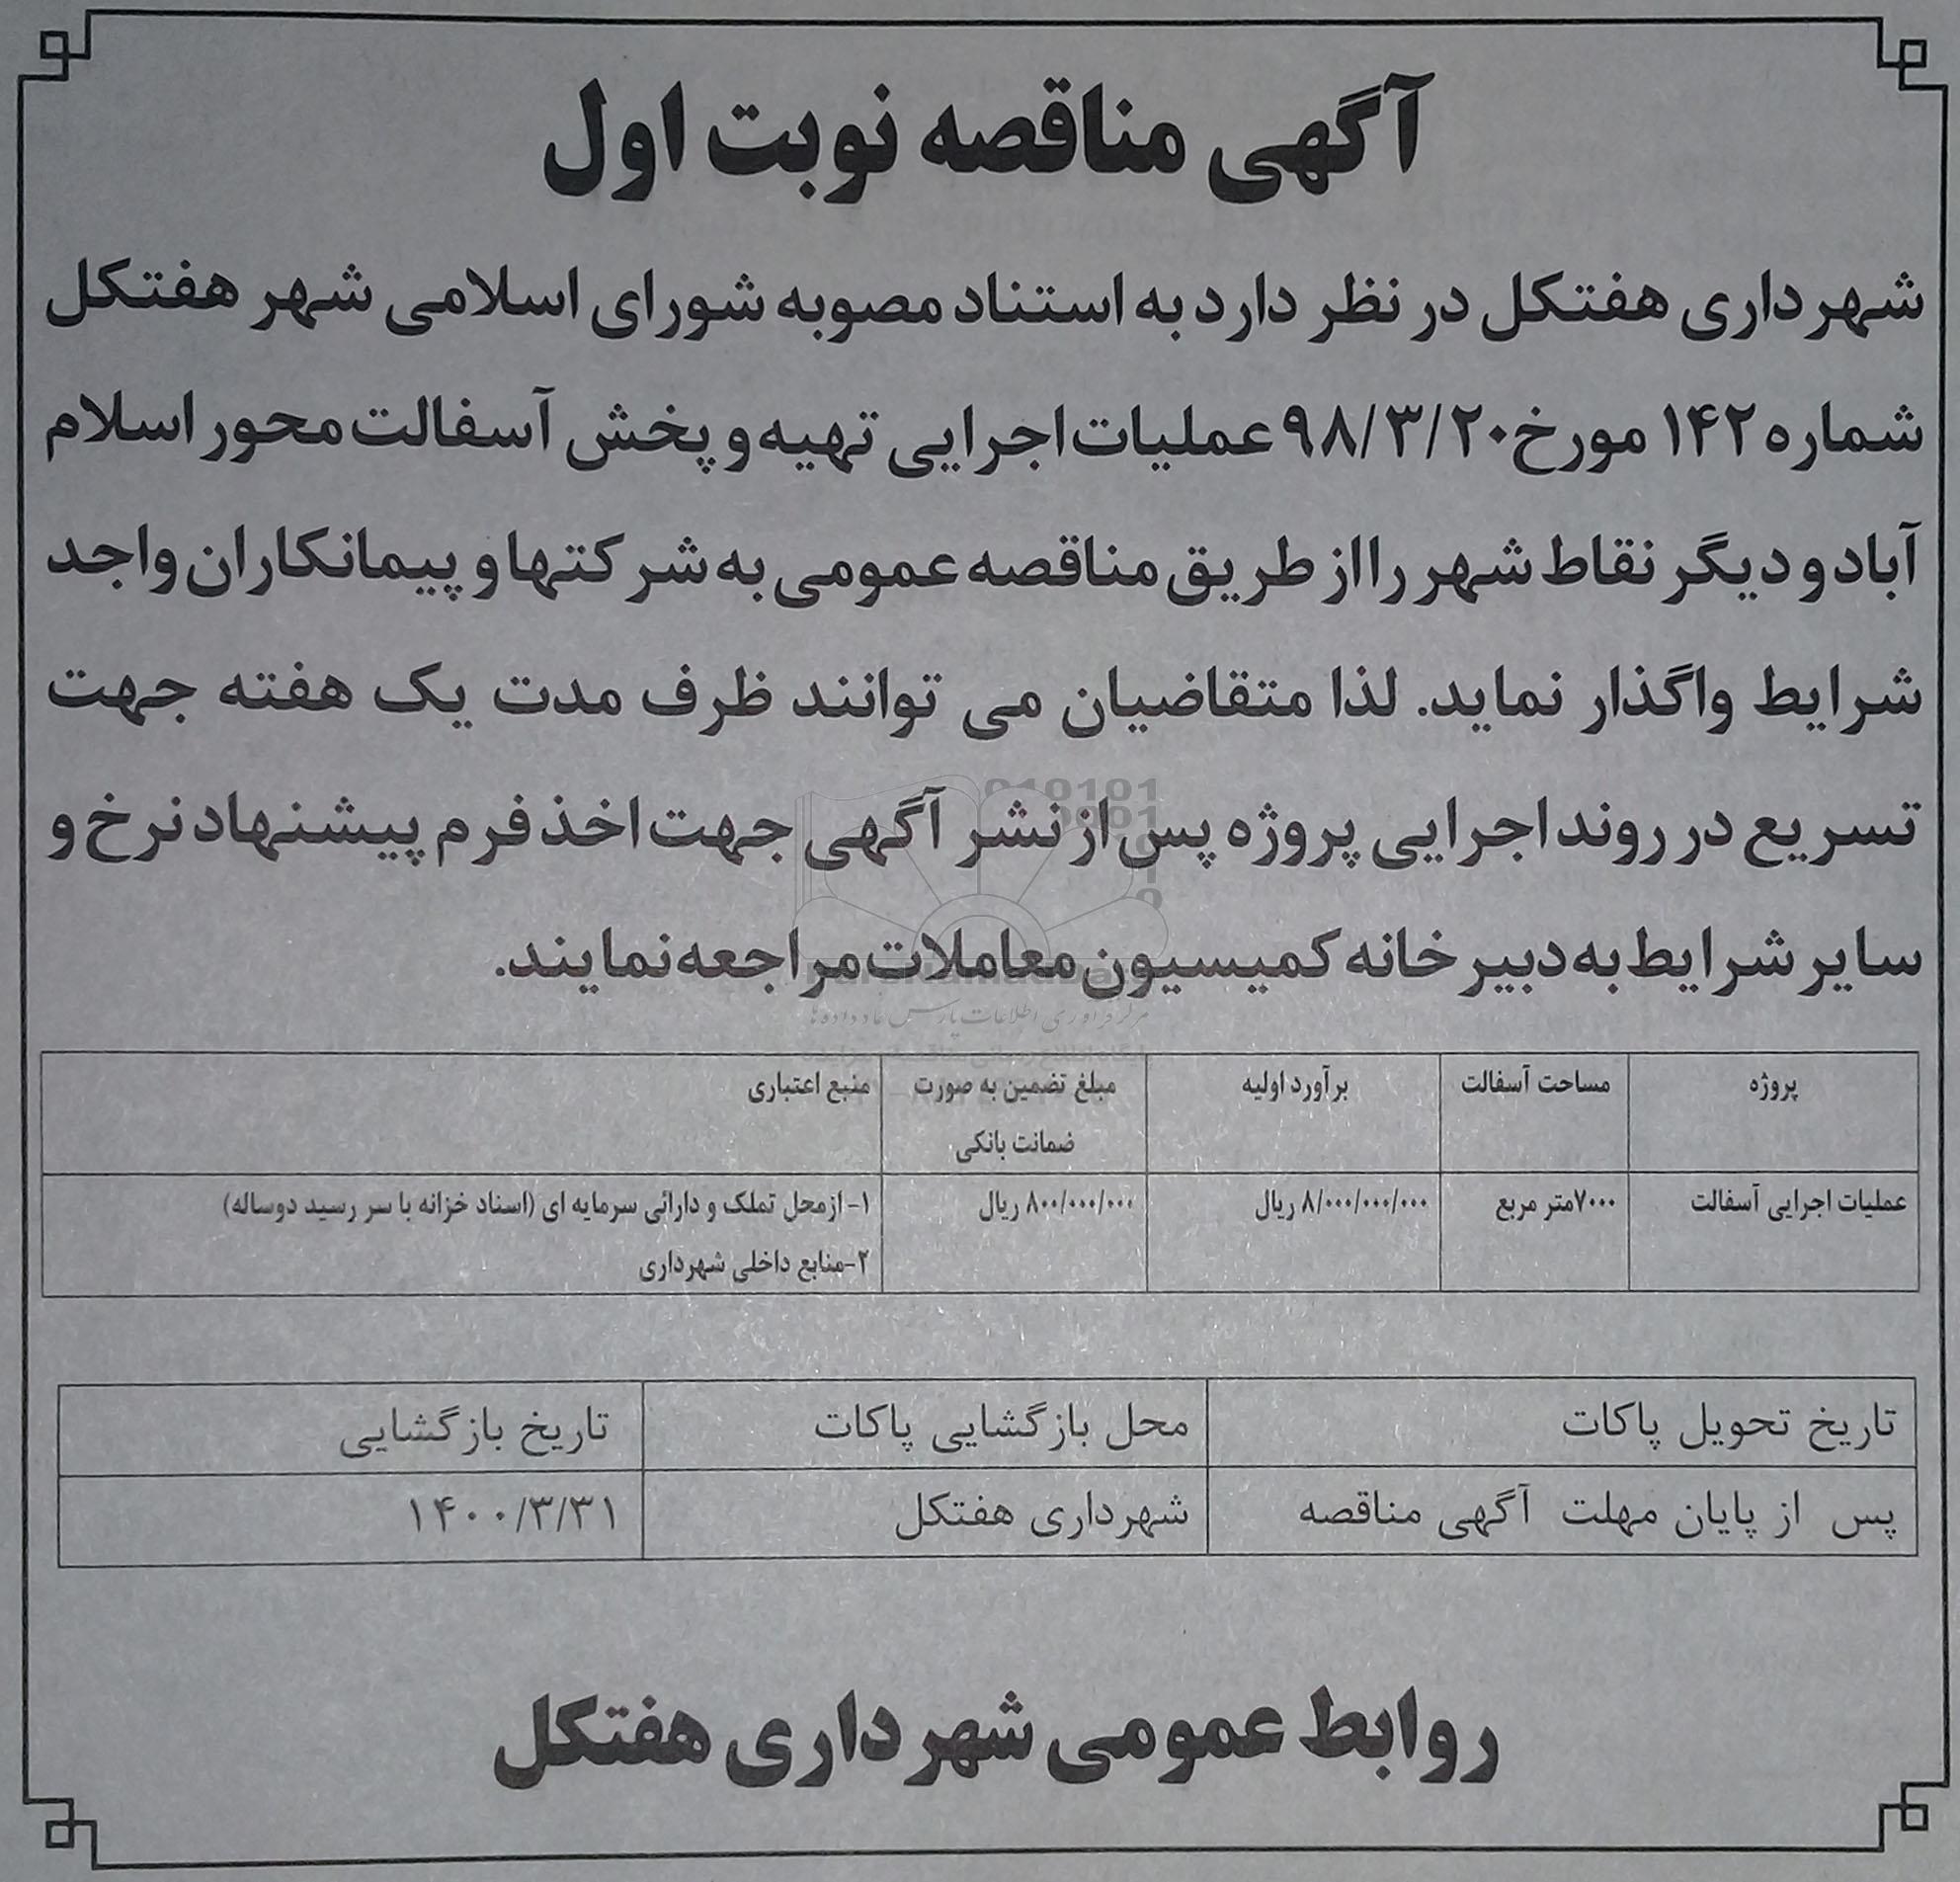 آگهی مناقصه نوبت اول
شهرداری هفتکل در نظر دارد به استناد مصوبه شورای اسلامی شهر هفتکل
شماره ۱۴۲ مورخ ۹۸/۳/۲۰ عملیات اجرایی تهیه و پخش آسفالت محور اسلام
آباد و دیگر نقاط شهر را از طریق مناقصه عمومی به شرکتها و پیمانکاران واجد
شرایط واگذار نماید. لذا متقاضیان می توانند ظرف مدت یک هفته جهت
تسریع در روند اجرایی پروژه پس از نشر آگهی جهت اخذ فرم پیشنهاد نرخ و
سایر شرایط به دبیرخانه کمیسیون معاملات مراجعه نمایند.
مرکز فرآوری اطلاعات پارس نماد داده ها
پروژه مساحت آسفالت برآورد اولیه مبلغ تضمین به صورت منبع اعتباری
ضمانت بانکی
عملیات اجرایی آسفالت ۷۰۰۰متر مربع ۸/۰۰۰/۰۰۰/۰۰۰ ریال ۸۰۰/۰۰۰/۰۰۰ ریال ۱- ازمحل تملک و دارائی سرمایه ای (اسناد خزانه با سر رسید دوساله)
۲-منابع داخلی شهرداری
تاریخ تحویل پاکات محل بازگشایی پاکات تاریخ بازگشایی
پس از پایان مهلت آگهی مناقصه شهرداری هفتکل ۱۴۰۰/۳/۳۱
روابط عمومی شهرداری هفتکل